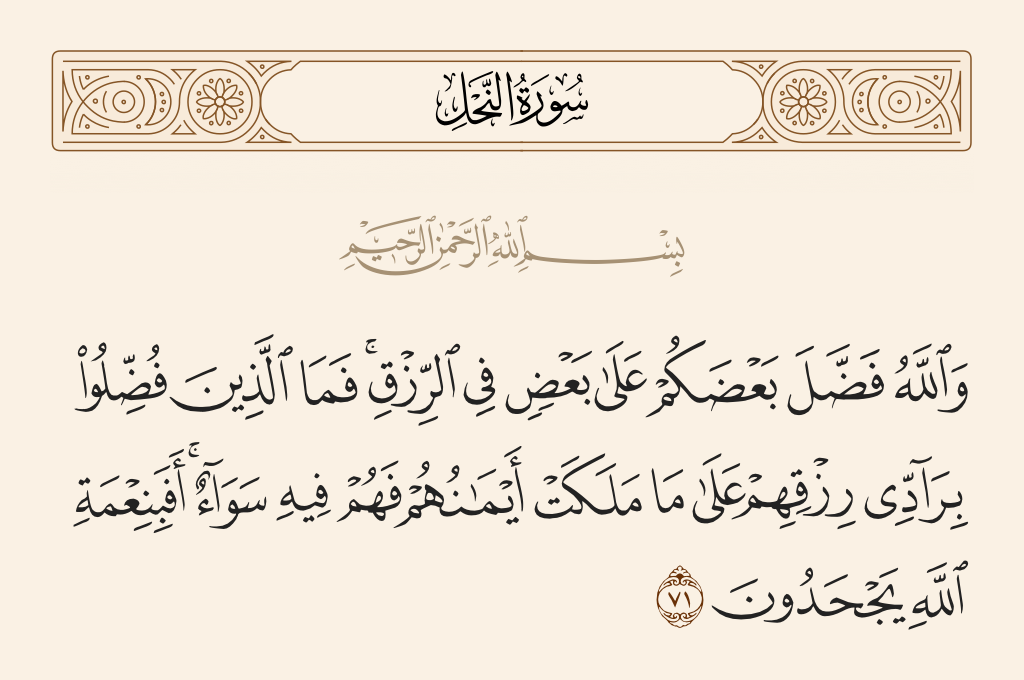 سُورَةُ النَّحْلِ
بِسْمِ ٱللَّهِ ٱلرَّحْمَٰنِ ٱلرَّحِيمِ
وَٱللَّهُ فَضَّلَ بَعْضَكُمْ عَلَىٰ بَعْضٍ فِى ٱلرِّزْقِ ۚ فَمَا ٱلَّذِينَ فُضِّلُوا۟
بِرَآدِّى رِزْقِهِمْ عَلَىٰ مَا مَلَكَتْ أَيْمَٰنُهُمْ فَهُمْ فِيهِ سَوَآءٌ ۚ أَفَبِنِعْمَةِ
ٱللَّهِ يَجْحَدُونَ ٧١